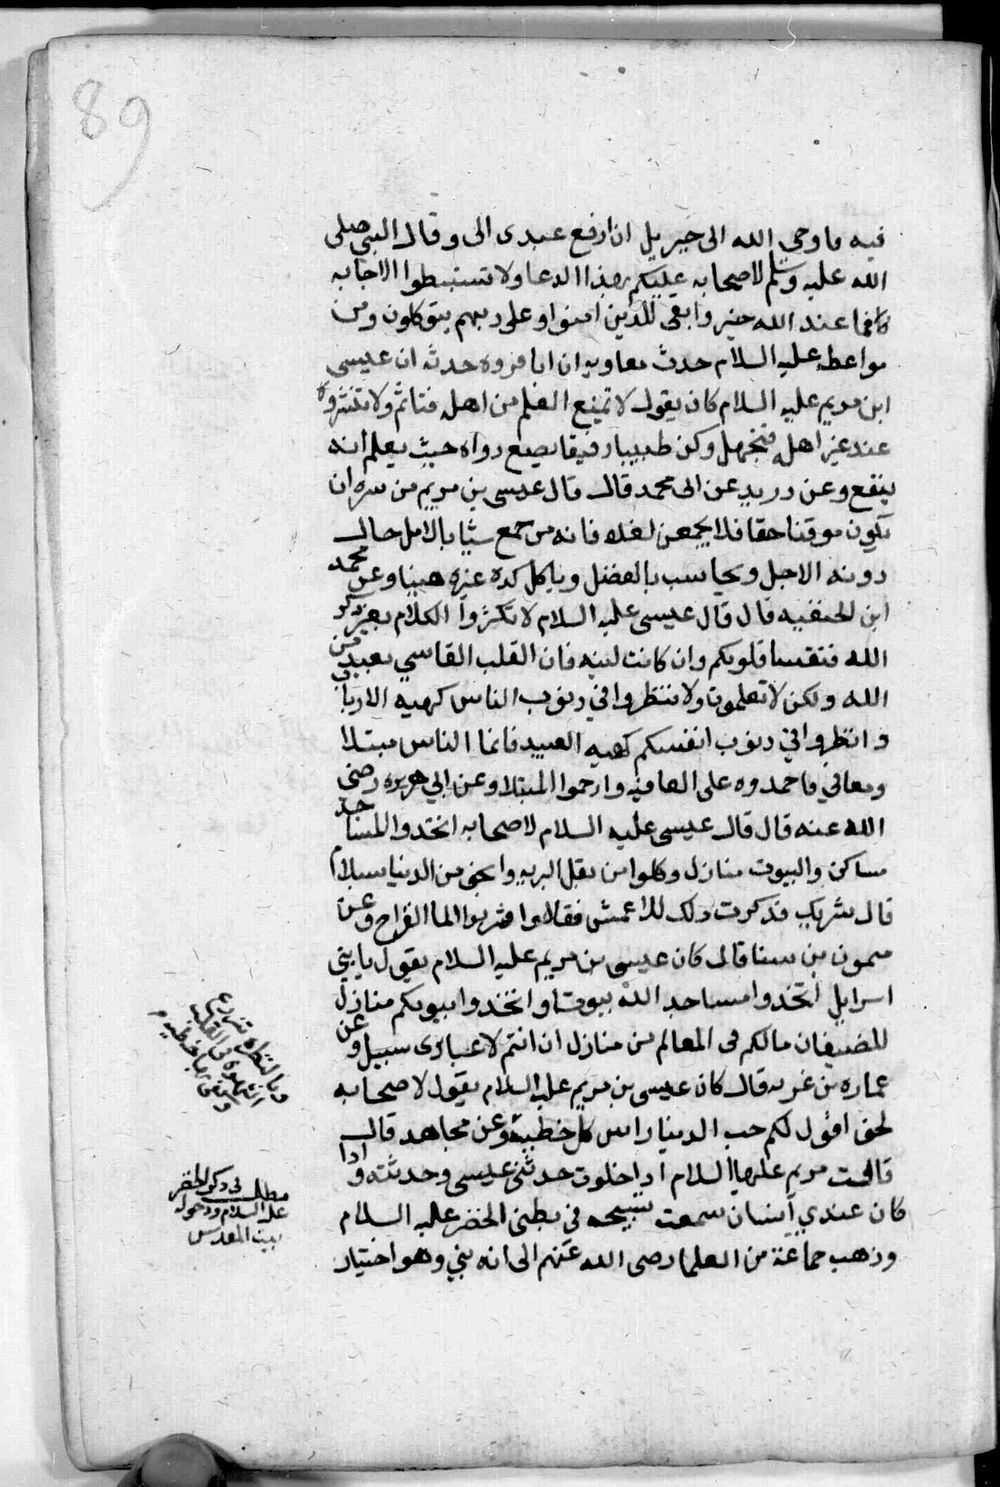 89
فيه فاوحى الله الى جبريل ان ارفع عبدى الى وقال النبي صلى
الله عليه وسلم لاصحابه عليكم بهذا الدعا ولا تستبطوا الاجابه
فما عند الله خير وابقى للذين امنوا وعلى ربهم يتوكلون ومن
مواعظه عليه السلام حدث معاويه ان ابا فروه حدثه ان عيسى
ابن مريم عليه السلام كان يقول لا تمنع العلم من اهله فتاثم ولا تنشروه
عند غير اهله فتجهل وكن طبيبا رفيقا يضع دواه حيث يعلم انه
ينفع وعن دريد عن ابى محمد قال قال عيسى بن مريم من سره ان
يكون موقنا حقا فلا يجمعن لغد فانه من جمع شيا بالامل حال
دونه الاجل ويحاسب بالفضل وياكل كده غيره هنيا وعن محمد
ابن الحنفيه قال قال عيسى عليه السلام لا تكثروا الكلام بغير ذكر
الله فتقسا قلوبكم وان كانت لينه فان القلب القاسي بعيد من
الله ولكن لا تعلمون ولا تنظروا في ذنوب الناس كهيه الارباب
وانظروا في ذنوب انفسكم كهيه العبيد فانما الناس مبتلا
ومعافي فاحمدوه على العافيه وارحموا المبتلا وعن ابي هريره رضى
الله عنه قال قال عيسى عليه السلام لاصحابه اتخدوا المساجد
مساكن والبيوت منازل وكلوا من بقل البريه وانجى من الدنيا بسلام
قال شريك فذكرت ذلك للاعمش فقال واشربوا الما القراح وعن
ميمون بن سنا قال كان عيسى بن مريم عليه السلام يقول يا بني
اسرايل اتخدوا مساجد الله بيوتا واتخدوا بيوتكم منازل
للضيفان مالكم فى العالم من منازل ان انتم الا عبارى سبيل وعن
عماره بن غزيه قال كان عيسى بن مريم عليه السلام يقول لاصحابه
لحق اقول لكم حب الدنيا راس كل خطيه وعن مجاهد قال
قالت مريم عليها السلام اذا خلوت حدثنى عيسى وحدثته واذا
كان عندي انسان سمعت تسبيحه في بطني الخضر عليه السلام
وذهب جماعة من العلما رضى الله عنهم الى انه نبي وهو اختيار
والنظره تزرع
فى القلب
الشهوه
وكفى بها فتنه
مطلب فى ذكر الخضر
عليه السلام ودخوله
بيت المقدس